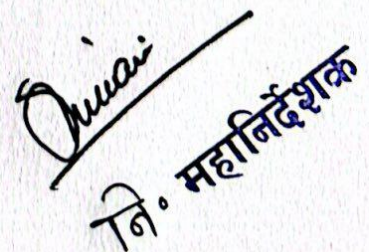 नि॰ महानिर्देशक